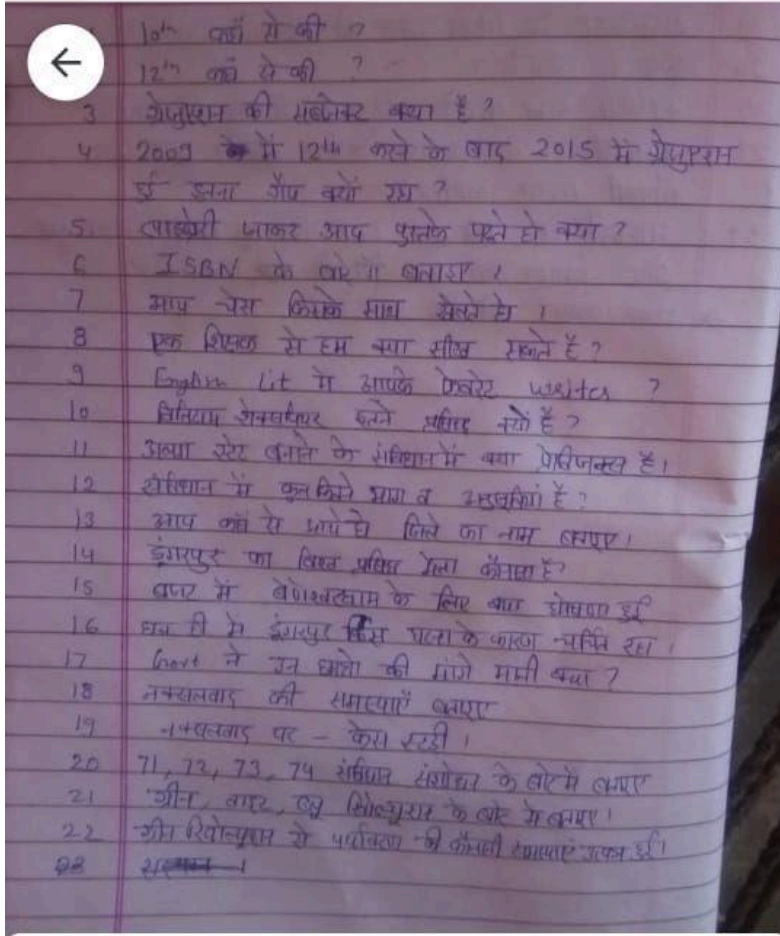 10th कहाँ से की ?
12th कहाँ से की ?
3 ग्रेजुएशन की सब्जेक्ट क्या है ?
4 2009 में 12th करने के बाद 2015 में ग्रेजुएशन
हुई इतना गैप क्यों रहा ?
5. लाइब्रेरी जाकर आप पुस्तके पढ़ते हो क्या ?
6 ISBN के बारे में बताइए ।
7 आप चेस किसके साथ खेलते हो ।
8 एक शिक्षक से हम क्या सीख सकते है ?
9 English Lit में आपके फेवरेट writer ?
10 विलियम शेक्सपीयर इतने प्रसिद्ध क्यों है ?
11 अलग स्टेट बनाने के संविधान में क्या प्रोविजन्स है।
12 संविधान में कुल कितने भाग व अनुसूचियां है ?
13 आप कहाँ से आये हो जिले का नाम बताए।
14 डूंगरपुर का विश्व प्रसिद्ध मेला कौनसा है?
15 बजट में बेणेश्वरधाम के लिए क्या घोषणा हुई
16 हाल ही में डूंगरपुर किस घटना के कारण चर्चित रहा ।
17 Govt ने उन छात्रो की मांगे मानी क्या ?
18 नक्सलवाद की समस्याएँ बताए
19 नक्सलवाद पर - केस स्टडी ।
20 71, 72, 73, 74 संविधान संशोधन के बारे में बताए
21 ग्रीन, वाइट, ब्लू रिवोल्यूशन के बारे में बताए।
22 ग्रीन रिवोल्यूशन से पर्यावरण की कौनसी समस्याएं उत्पन्न हुई।
23